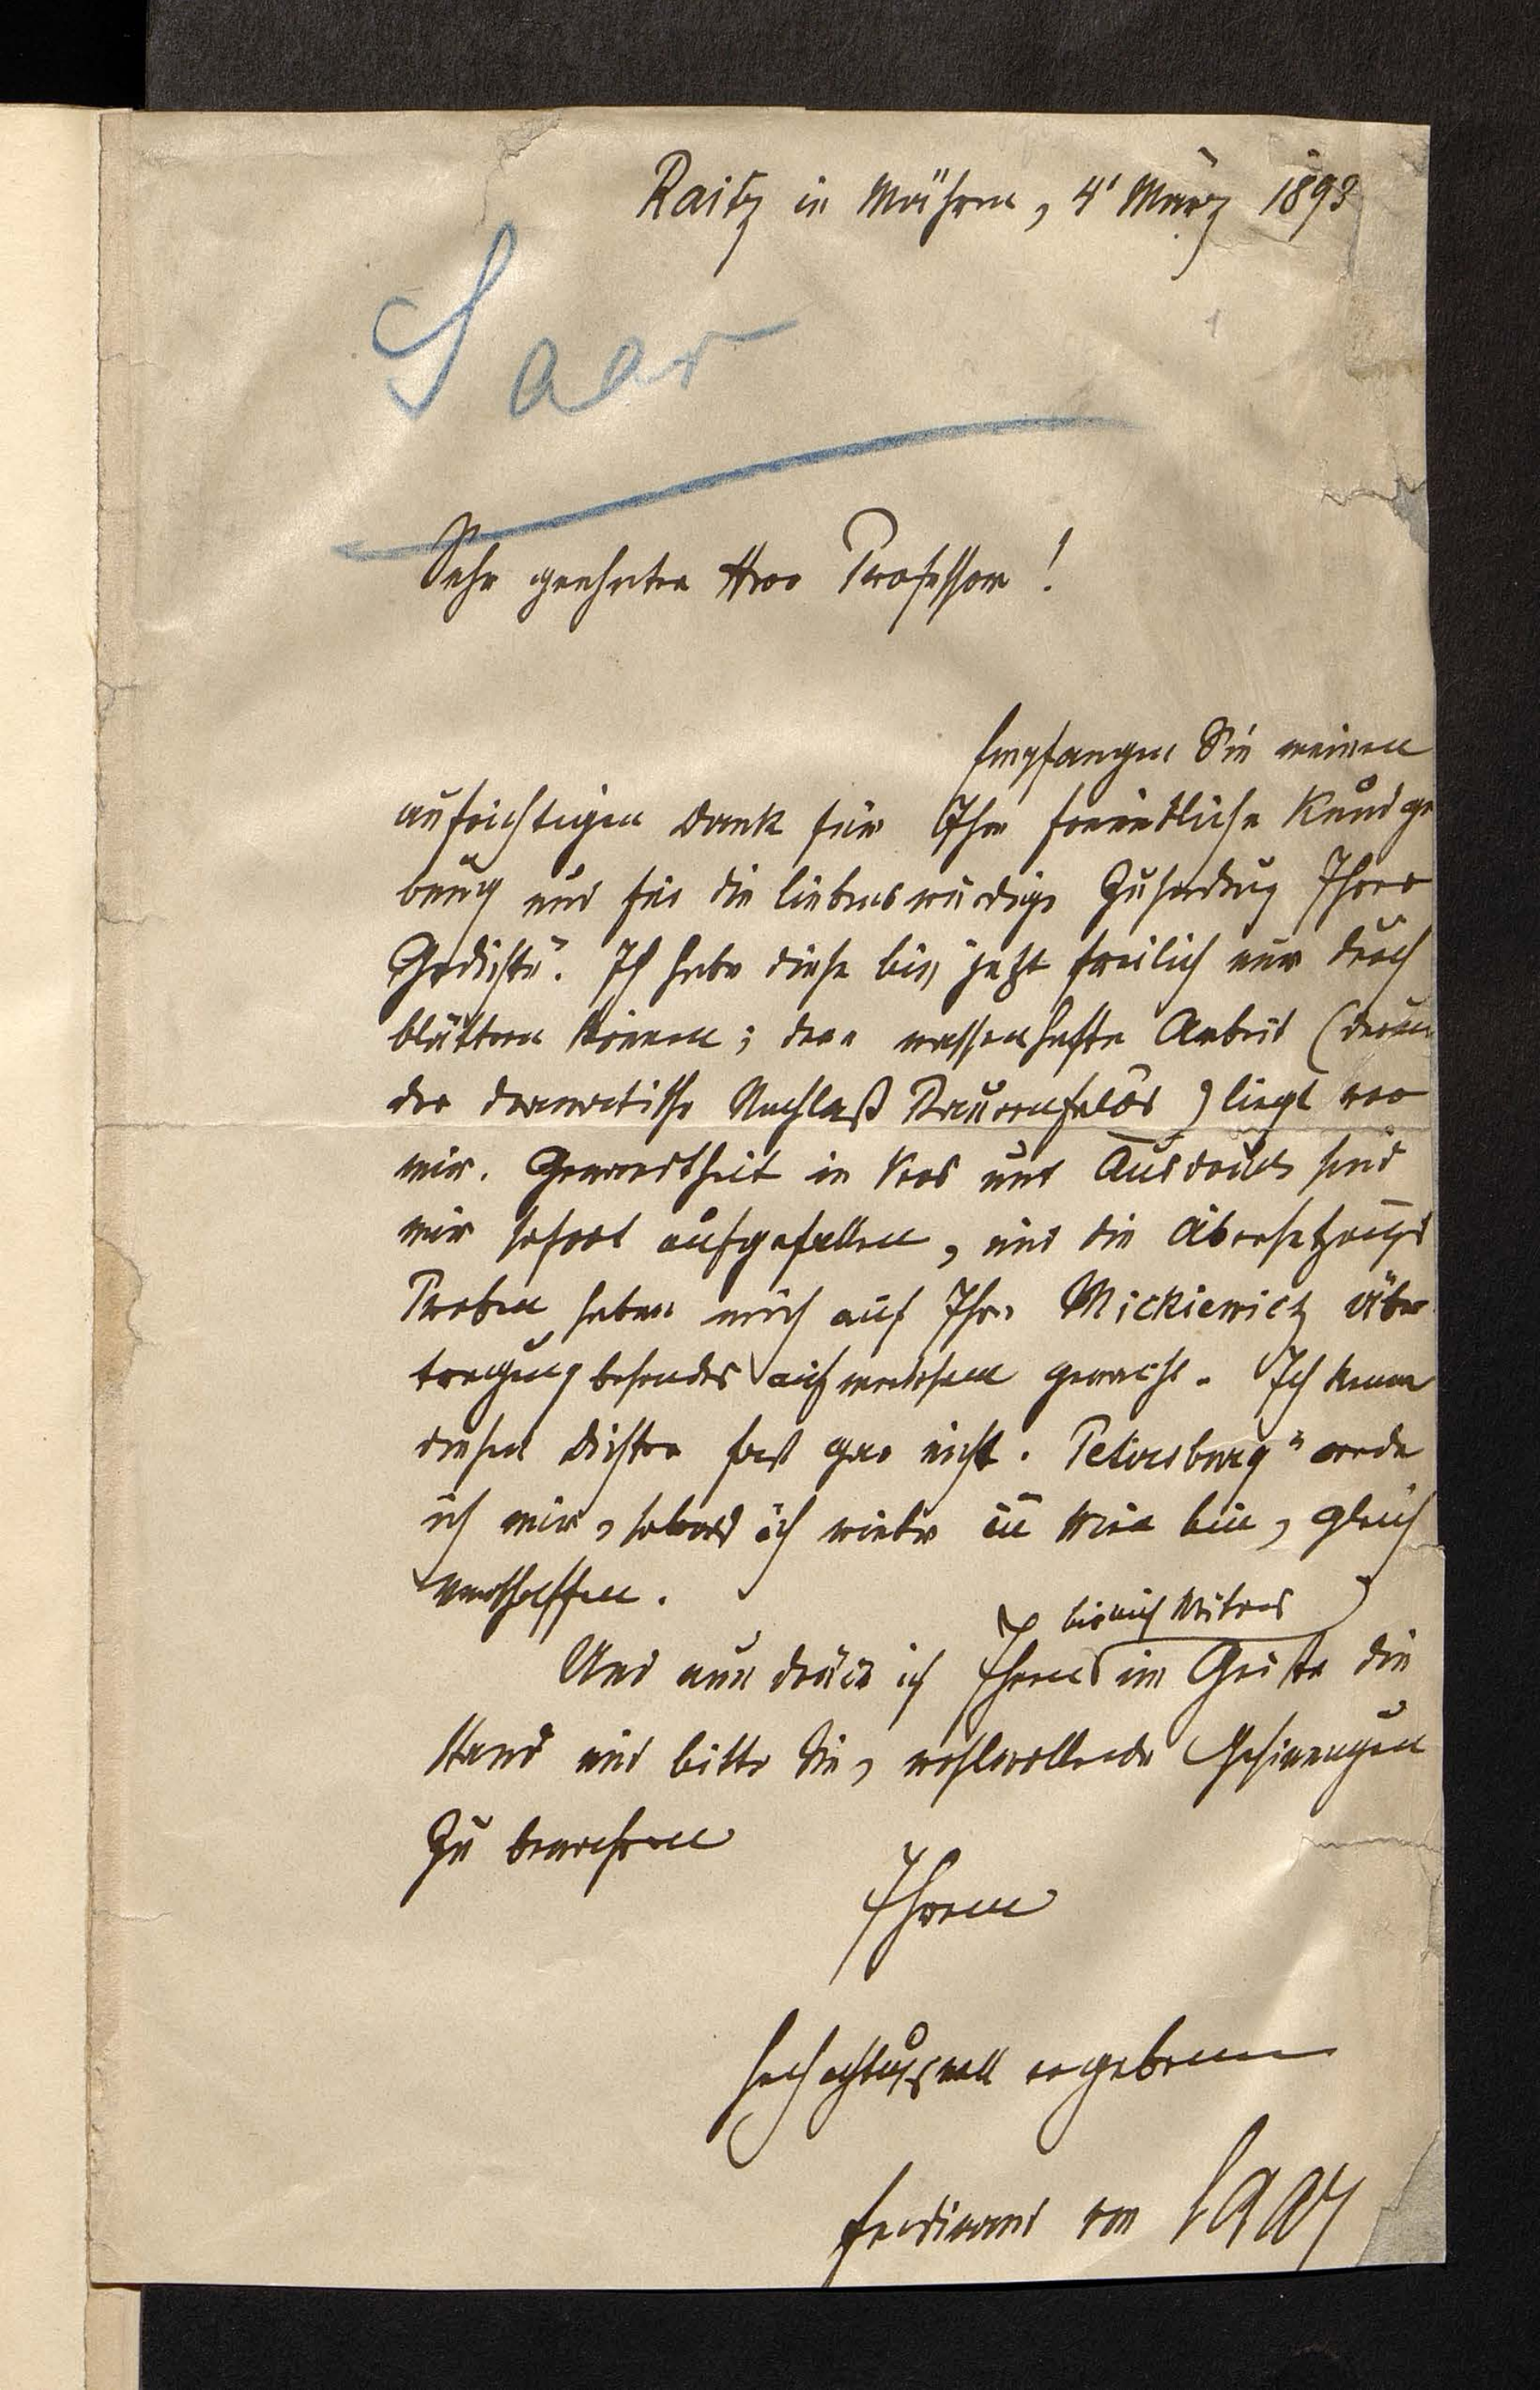 Raitz in Mähren, 4' März 1893
Saar
Sehr geehrter Herr Professor!
Empfangen Sie meinen
aufrichtigen Dank für Ihre freundliche Kundge
bung und für die liebenswürdige Zusendung Ihrer
Gedichte". Ich habe diese bis jetzt freilich nur durch
blättern können; denn massenhafte Arbeit (darun
der dramatische Nachlaß Bauernfelds) liegt vor
mir. Gewandtheit in Vers und Ausdruck sind
mir sofort aufgefallen, und die Übersetzungs
Proben haben mich auf Ihre Mickiewicz Über
tragung besonders aufmerksam gemacht. Ich kenne
diesen Dichter fast gar nicht. Petersburg" werde
ich mir, sobald ich wieder in Wien bin, gleich
verschaffen.
bis auf Weiteres
Und nun drücke ich Ihnen im Geiste die
Hand und bitte Sie, wohlwollende Gesinnungen
zu bewahren
Ihrem
hochachtungsvoll ergebenen
Ferdinand von Saar